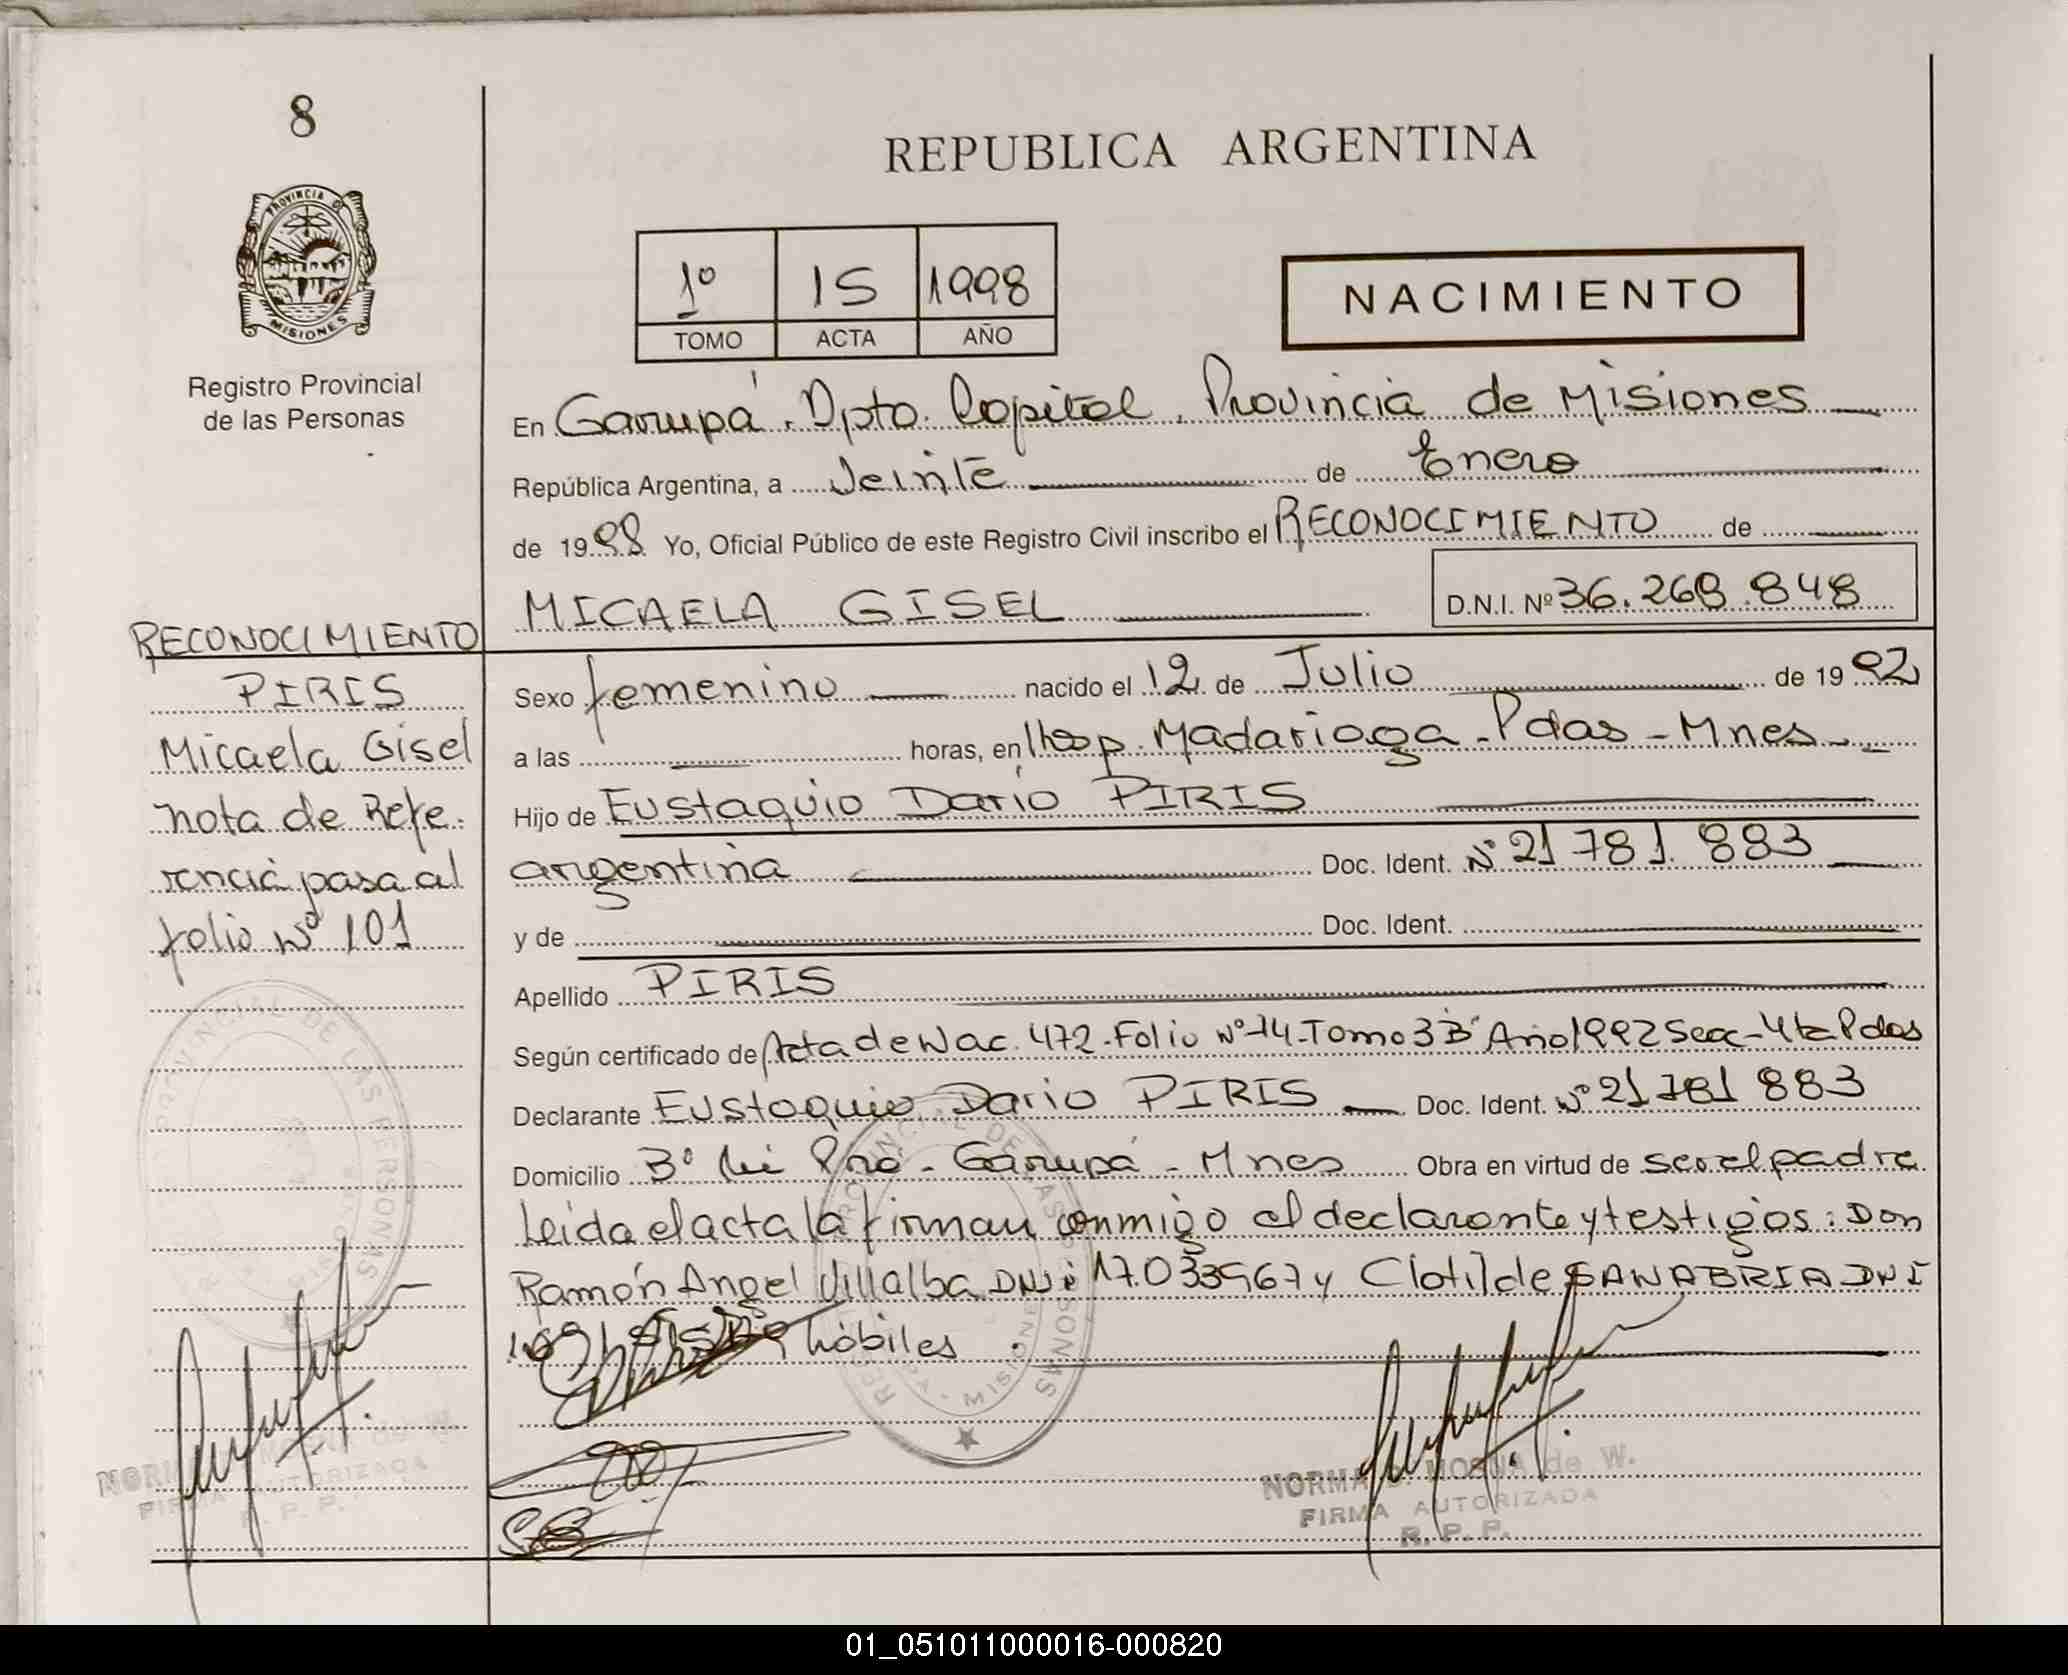 8
PROVINCIA DE
MISIONES
Registro Provincial
de las Personas
REPUBLICA ARGENTINA
1º 15 1998
TOMO ACTA AÑO
NACIMIENTO
En Garupá. Dpto. Capital. Provincia de Misiones
República Argentina, a Veinte de Enero
de 1998 Yo, Oficial Público de este Registro Civil inscribo el RECONOCIMIENTO de
MICAELA GISEL
D.N.I. Nº 36.268.848
RECONOCIMIENTO
PIRIS
Micaela Gisel
nota de Refe-
rencia pasa al
folio Nº 101
Sexo femenino nacido el 12 de Julio de 1992
a las horas, en Hosp. Madariaga - Pdas - Mnes
Hijo de Eustaquio Dario PIRIS
argentina Doc. Ident. Nº 21 781 883
y de Doc. Ident.
Apellido PIRIS
Según certificado de Acta de Nac. 472 - Folio Nº 74 - Tomo 3 B" Año 1992 Secc - 4ta Pdas
Declarante Eustaquio Dario PIRIS Doc. Ident. Nº 21 781 883
Domicilio Bº - Garupá - Mnes Obra en virtud de ser el padre
Leida el acta la firman conmigo el declarante y testigos: Don
Ramón Angel Villalba DNI 17.039567 y Clotilde SANABRIA DNI
hábiles
REGISTRO PROVINCIAL DE LAS PERSONAS
MISIONES
NORMA de W.
FIRMA AUTORIZADA
R. P. P.
NORMA de W.
FIRMA AUTORIZADA
R. P. P.
01_051011000016-000820